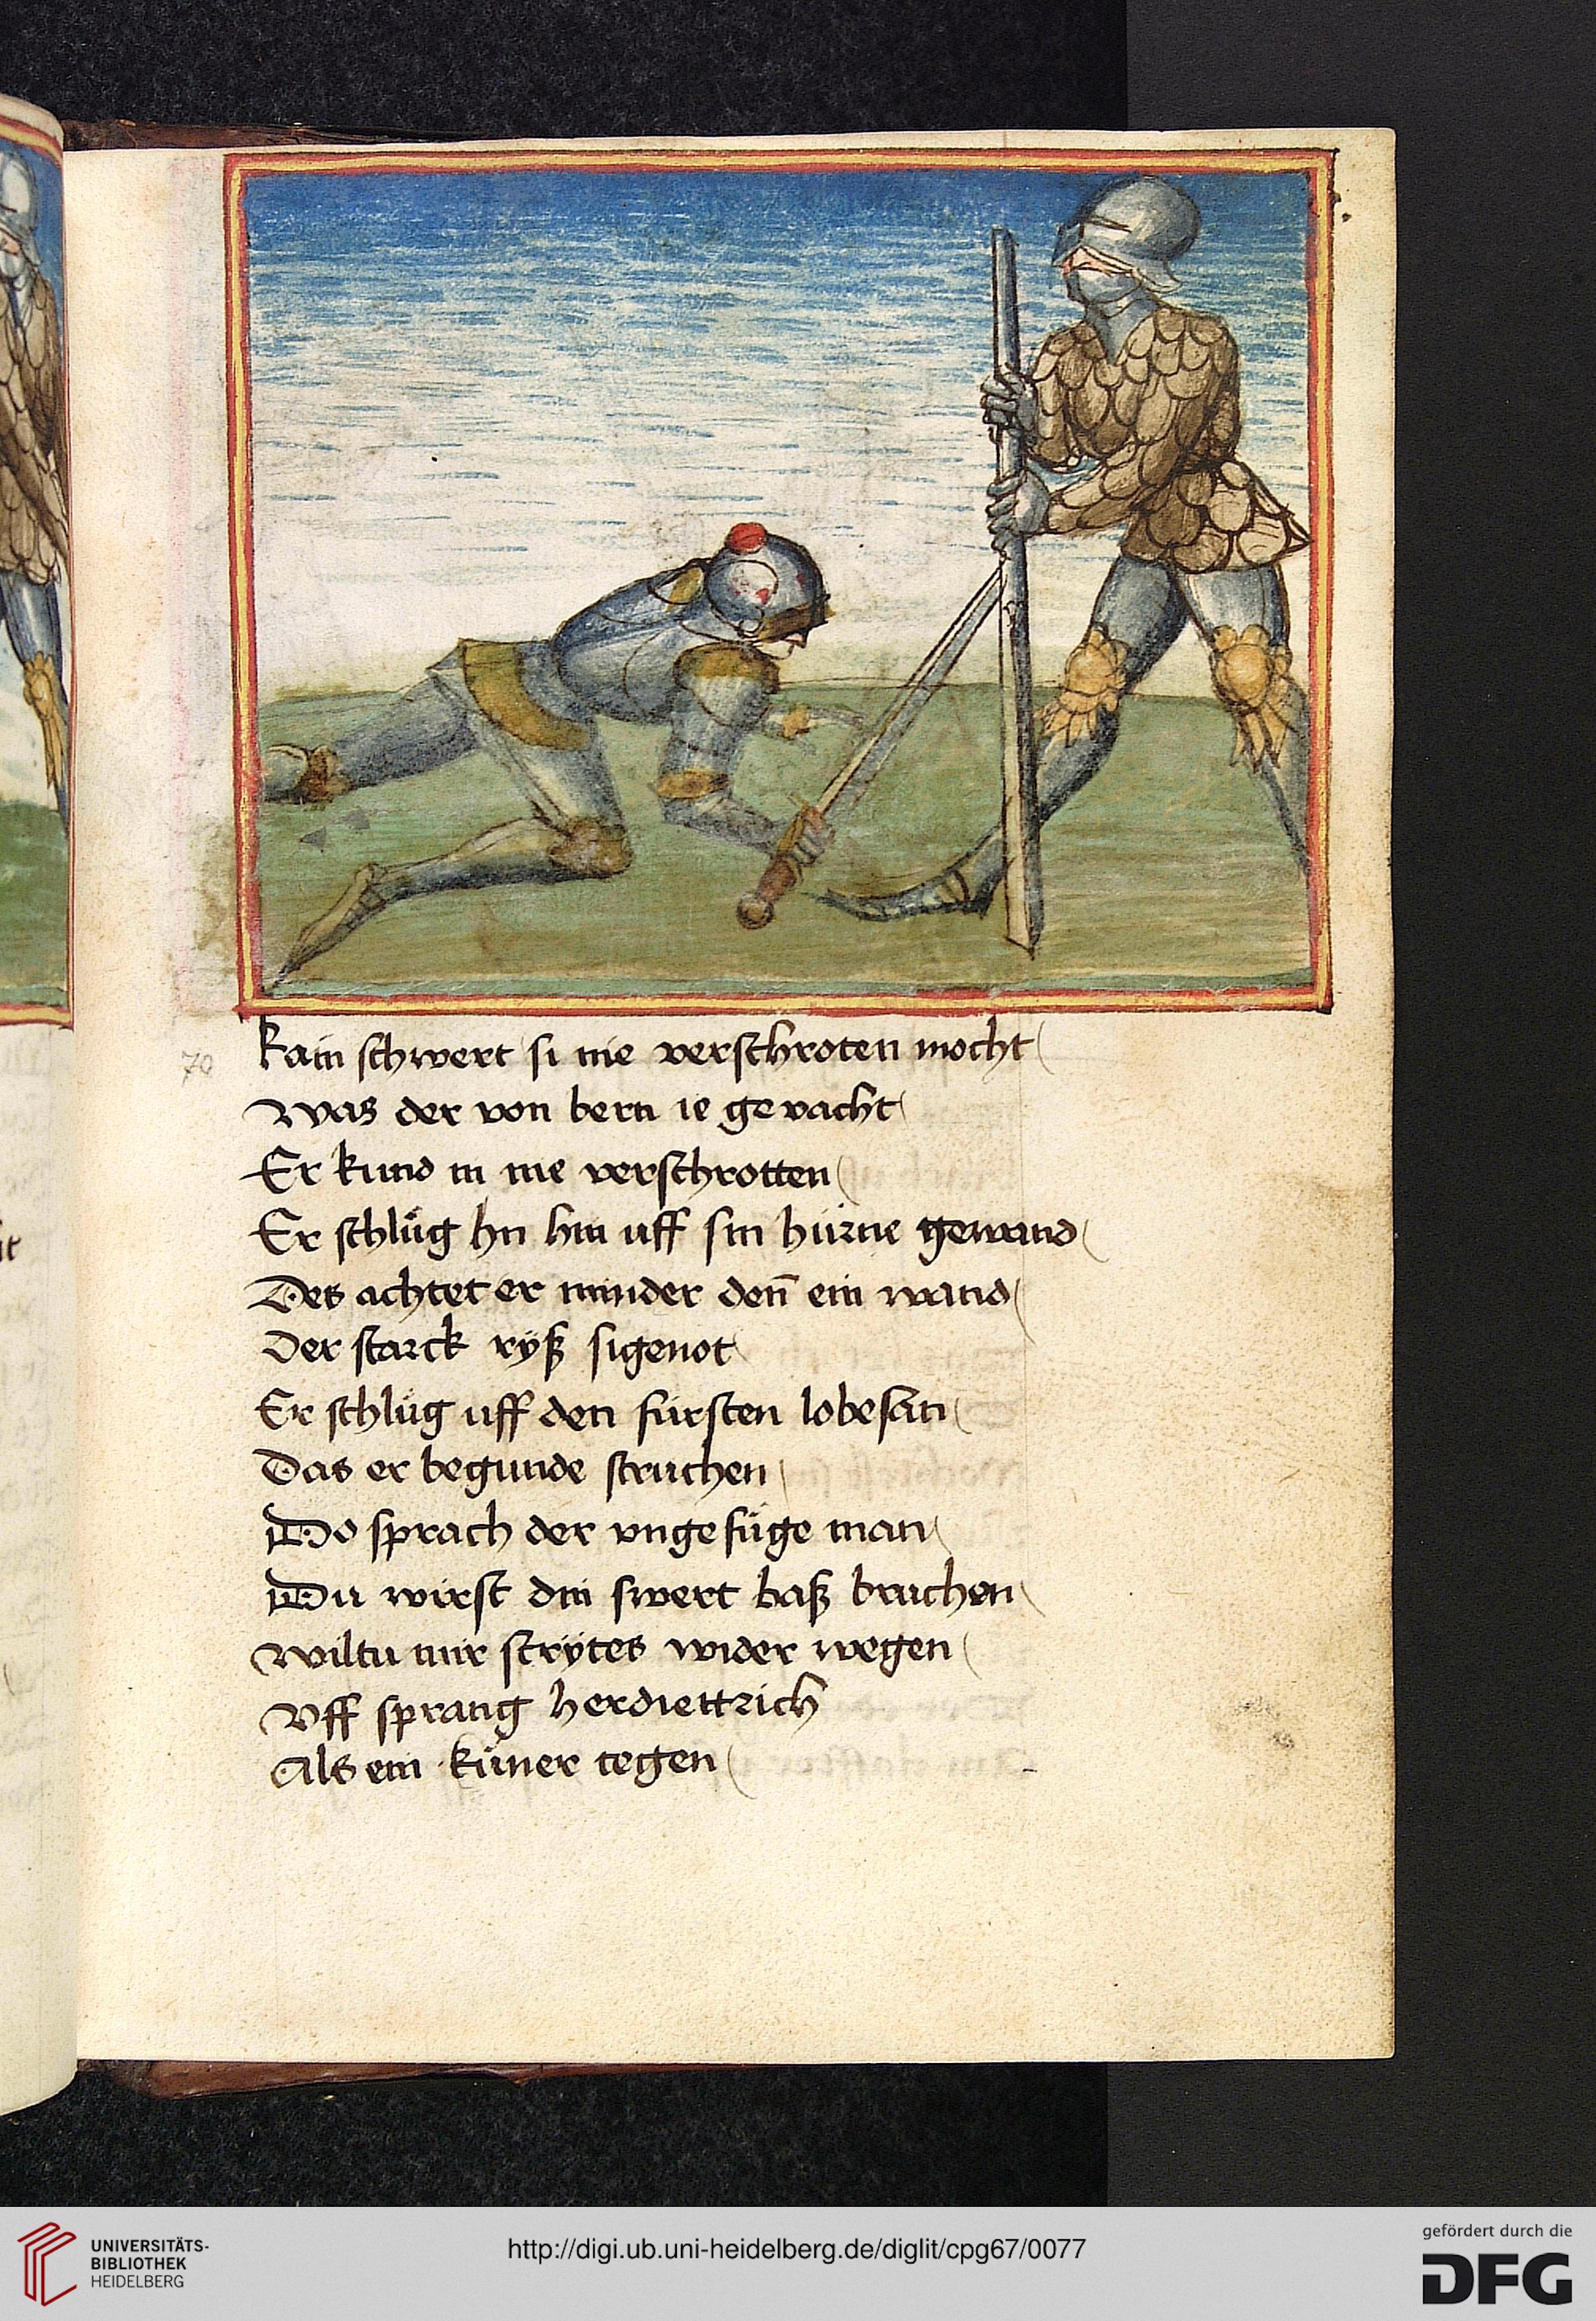 70
kain schwert si nie verschroten mocht
Was der von bern ie gevacht
Er kund in nie verschrotten
Er schlůg hn hin uff sin hürne gewand
Des achtet er minder deñ ein wand
Der starck ryß sigenot
Er schlůg uff den fürsten lobesan
Das er begunde struchen
Do sprach der vngefůge man
Du wirst din swert baß bruchen
Wiltu mir strytes wider wegen
Vff sprang her diettrich
Als ein kůner tegen
UNIVERSITÄTS-
BIBLIOTHEK
HEIDELBERG
http://digi.ub.uni-heidelberg.de/diglit/cpg67/0077
gefördert durch die
DFG